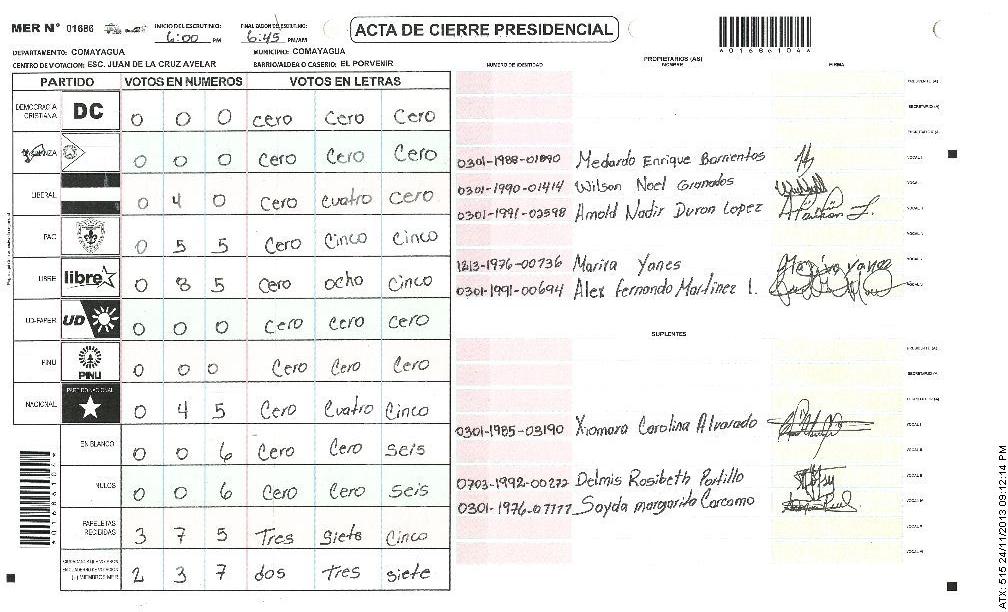 MER N° 01686
INICIO DEL ESCRUTINIO: 6:00 PM
FINALIZACION DEL ESCRUTINIO: 6:45 PM/AM
ACTA DE CIERRE PRESIDENCIAL
DEPARTAMENTO: COMAYAGUA
MUNICIPIO: COMAYAGUA
CENTRO DE VOTACION: ESC. JUAN DE LA CRUZ AVELAR
BARRIO/ALDEA O CASERIO: EL PORVENIR
PARTIDO VOTOS EN NUMEROS VOTOS EN LETRAS
DEMOCRACIA CRISTIANA DC 0 0 0 cero Cero Cero
0 0 0 Cero Cero Cero
LIBERAL 0 4 0 Cero Cuatro Cero
PAC 0 5 5 Cero Cinco Cinco
LIBRE libre 0 8 5 Cero ocho Cinco
UD-FAPER UD 0 0 0 Cero Cero Cero
PINU PINU 0 0 0 Cero Cero Cero
NACIONAL PARTIDO NACIONAL 0 4 5 Cero Cuatro Cinco
EN BLANCO 0 0 6 Cero Cero Seis
NULOS 0 0 6 Cero Cero Seis
PAPELETAS RECIBIDAS 3 7 5 Tres Siete Cinco
2 3 7 dos Tres siete
NUMERO DE IDENTIDAD
PROPIETARIOS (AS)
NOMBRE
FIRMA
0301-1988-01090 Medardo Enrique Barrientos
0301-1990-01414 Wilson Noel Granados
0301-1991-02598 Arnold Nadir Duron Lopez
1213-1976-00736 Marira Yanes
0301-1991-00694 Alex Fernando Martinez l.
SUPLENTES
0301-1985-03190 Xiomara Carolina Alvarado
0703-1992-00272 Delmis Rosibeth Portillo
0301-1976-07777 Sayda margarita Carcamo
ATX: 515 24/11/2013 09:12:14 PM